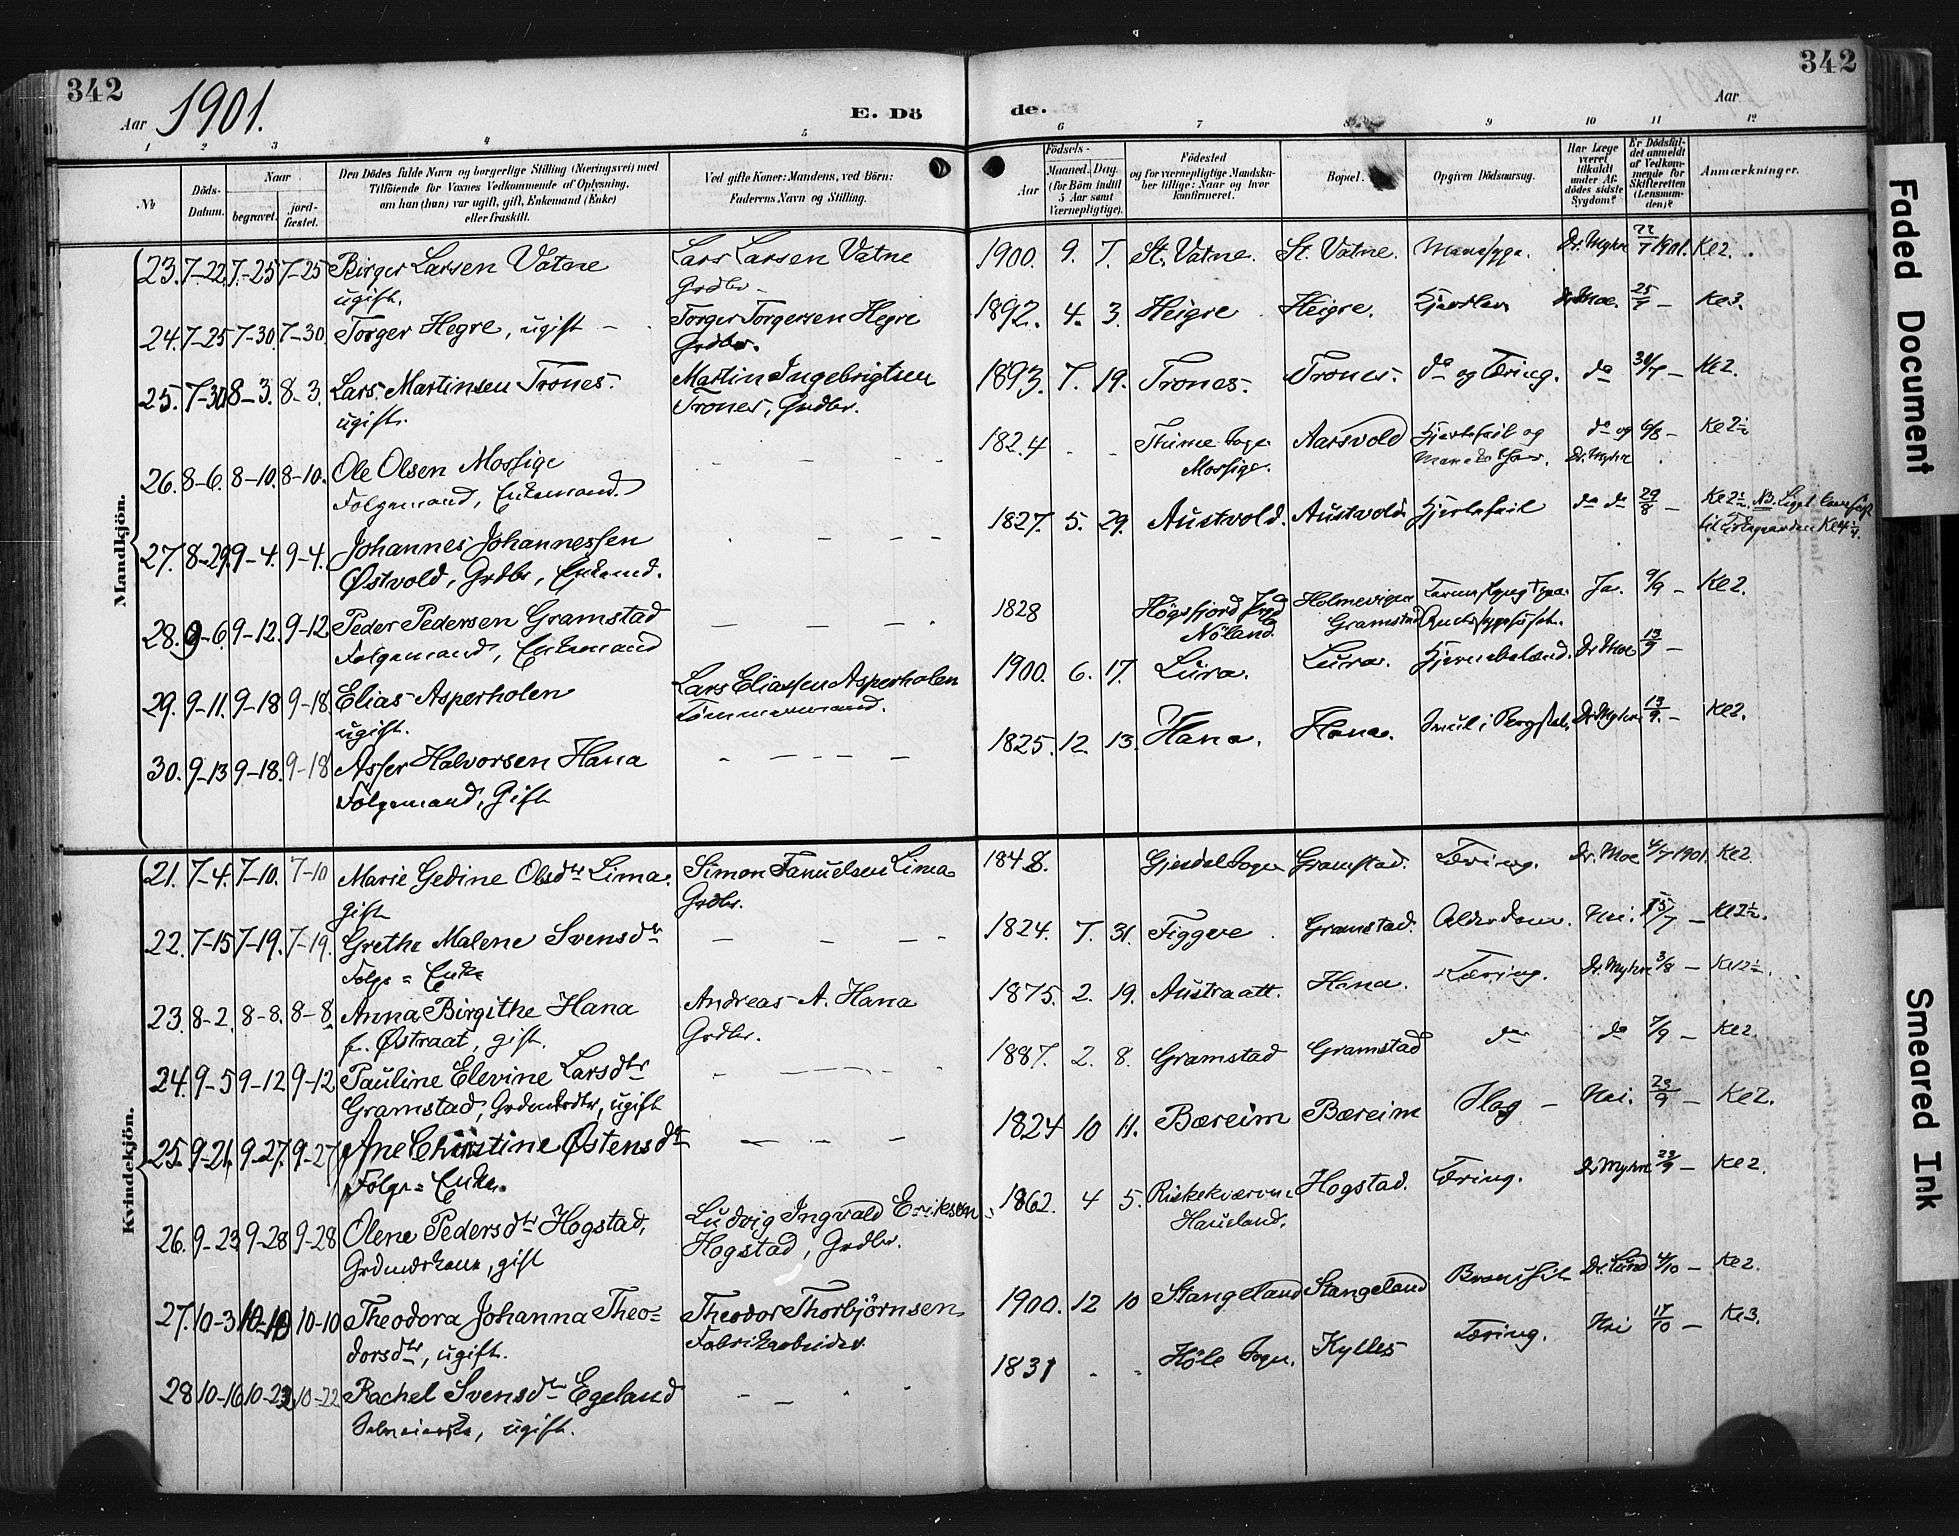 342
342
Aar 1901.
E. Dö
de.
Aar
1 2 3 4 5 6 7 8 9 10 11 12
No
Döds-Datum.
Naar
begravet.
jordfæstet.
Den Dödes fulde Navn og borgerlige Stilling (Næringsvei) med
Tilföiende for Voxnes Vedkommende af Oplysning,
om han (hun) var ugift, gift, Enkemand (Enke)
eller fraskilt.
Ved gifte Koner: Mandens, ved Börn:
Faderens Navn og Stilling.
Födsels-
Aar
Maaned. Dag.
(for Börn indtil
5 Aar samt
Værnepligtige).
Födested
og for værnepligtige Mandskaber tillige: Naar og hvor
konfirmeret.
Bopæl.
Opgiven Dödsaarsag.
Har Læge
været
tilkaldt
under Afdödes sidste
Sygdom?
Er Dödsfaldet anmeldt
af Vedkommende for
Skifteretten
(Lensmanden)?
Anmærkninger.
Mandkjön.
23. 7-22 7-25 7-25 Birger Larsen Vatne Lars Larsen Vatne 1900. 9. 7. St. Vatne. St. Vatne. Dr. Myhre 22/7 1901. Ke 2.
ugift. Grdbr.
24. 7-25 7-30 7-30. Torger Hegre, ugift Torger Torgersen Hegre 1892. 4. 3. Heigre Heigre. Dr. Moe. 25/7 Ke 3.
Grdbr.
25. 7-30 8-3. 8-3. Lars Martinsen Trones. Martin Ingebrigtsen 1893. 7. 19. Trones. Trones. do og Tæring. do 30/7 Ke 2.
ugift. Trones, Grdbr.
26. 8-6. 8-10. 8-10. Ole Olsen Mossige 1824 Thime Sogn Aarsvold Hjertefeil og do og 6/8 Ke 2½
Folgemand, Enkemand Mossige. Dr. Myhre
27. 8-29. 9-4. 9-4. Johannes Johannessen 1827. 5. 29. Austvold. Austvold Hjertefeil do do 29/8 Ke 2½. NB. Liget
Østvold, Grdbr, Enkemd. til
28. 9-6. 9-12. 9-12 Peder Pedersen Gramstad 1828 Høgsfjord Holmevigen Ja. 9/9 Ke 2.
Folgemand, Enkemand Nöland Gramstad
29. 9-11. 9-18 9-18. Elias Asperholen Lars Eliassen Asperholen 1900. 6. 17. Lura. Lura. Dr. Moe 13/9
ugift. Tømmermand.
30. 9-13 9-18. 9-18 Asser Halvorsen Hana 1825. 12. 13. Hana. Hana. Dr. Myhre 13/9. Ke 2.
Folgemand, Gift
Kvindekjön.
21. 7-4. 7-10. 7-10 Marie Gedine Olsdtr Lima. Simon Tanuelsen Lima 1848. Gjesdal Sogn Gramstad. Tæring. Dr. Moe 4/7 1901. Ke 2.
gift Grdbr.
22. 7-15 7-19. 7-19. Grethe Malene Svensdtr 1824. 7. 31. Figgve Gramstad. Alderdom. Nei. 15/7 Ke 2½.
Folge = Enke
23. 8-2. 8-8. 8-8 Anna Birgithe Hana Andreas A. Hana 1875. 2. 19. Austraatt. Hana. Tæring. Dr. Myhre 3/8 Ke 2½.
f. Østraat, gift. Grdbr.
24. 9-5 9-12 9-12 Pauline Elevine Larsdtr 1887. 2. 8. Gramstad Gramstad do do 7/9 Ke 2.
Gramstad, ugift
25. 9-21. 9-27. 9-27 Ane Christine Østensdtr 1824 10 11. Bæreim Bæreim Slag Nei. 23/9 Ke 2.
Folge = Enke.
26. 9-23 9-28 9-28 Olene Pedersdtr Hogstad, Ludvig Ingvald Eriksen 1862. 4 5. Riskekværven Hogstad. Tæring. Dr. Myhre 23/9 Ke 2.
gift Hogstad, Grdbr. Haueland.
27. 10-3 10-10 10-10 Theodora Johanna Theo= Theodor Thorbjörnsen 1900. 12 10 Stangeland Stangeland Dr. Lund 4/10 Ke 2.
dorsdtr, ugift. Fabrikarbeider.
28 10-16 10-22 10-22 Rachel Svensdtr Egeland 1831 Høle Sogn. Kylles Tæring. Nei 17/10 Ke 3.
ugift.
Faded Document
Smeared Ink